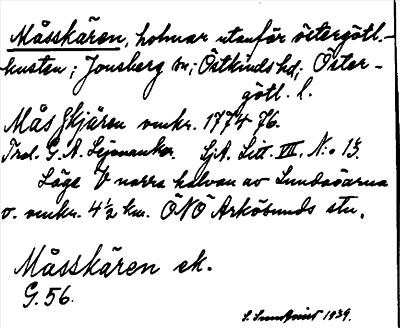 Måsskären, holmar utanför östergötl.-
kusten; Jonsberg sn; Östkinds hd; Öster-
götl. l.
Mås Skjären omkr. 1774-76.
Trol. G. A. Lejonanckar. SjA. Litt. VII. N:o 15.
Läge V norra halvan av Lundaöarna
o. omkr. 4 ½ km. ÖNÖ Arkösunds stn.
Måsskären ek.
G. 56.
S. Lundquist 1939.